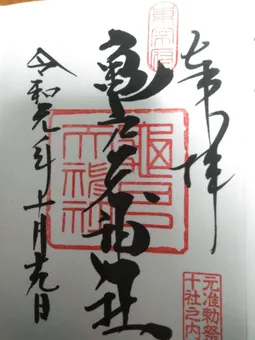 東宰府
奉拝
亀戸天神社
龜戸
天神社
元准勅祭
十社之内
令和元年十月九日